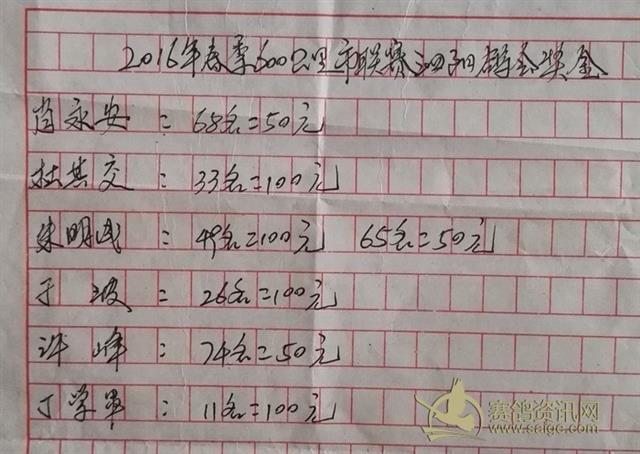 2016年春季600公里市联赛泗阳群会奖金
肖永安：68名=50元
杜其交：33名=100元
朱明成：49名=100元 65名=50元
于波：26名=100元
许峰：74名=50元
丁学军：11名=100元
赛鸽资讯网
www.saige.com